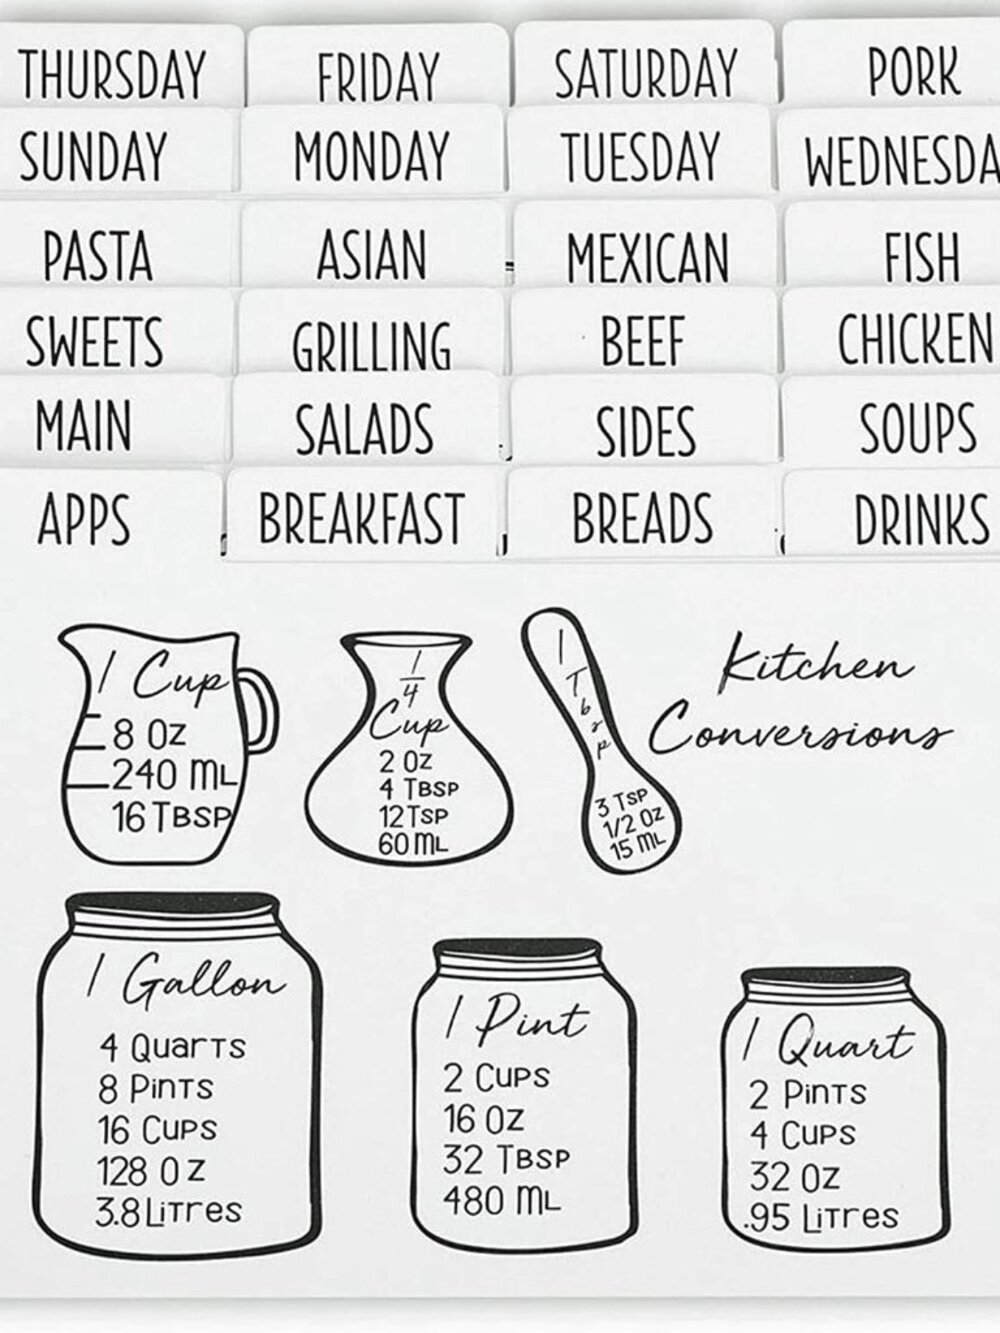 THURSDAY FRIDAY SATURDAY PORK
SUNDAY MONDAY TUESDAY WEDNESDA
PASTA ASIAN MEXICAN FISH
SWEETS GRILLING BEEF CHICKEN
MAIN SALADS SIDES SOUPS
APPS BREAKFAST BREADS DRINKS
1 Cup
8 Oz
240 ML
16 TBSP
1/4
Cup
2 Oz
4 TBSP
12 TSP
60 ML
1 Tbsp
3 TSP
1/2 Oz
15 ML
Kitchen
Conversions
1 Gallon
4 Quarts
8 Pints
16 Cups
128 Oz
3.8 Litres
1 Pint
2 Cups
16 Oz
32 TBSP
480 ML
1 Quart
2 Pints
4 Cups
32 Oz
.95 Litres